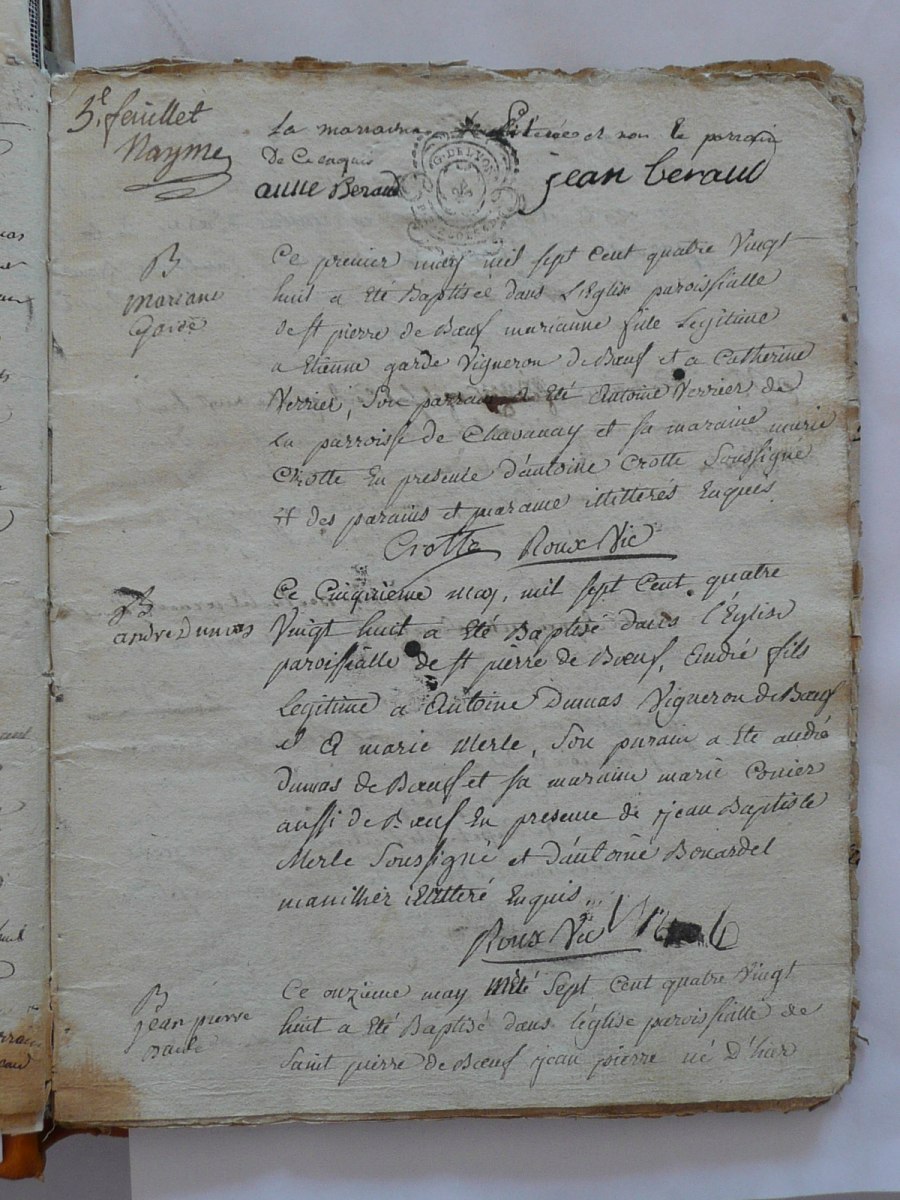 3e feuillet
Nayme
La marraine et non le parrain
De Ce enquis
anne Beraud jean beraud
G. DE LYON
B
mariane
Garde
Ce premier may mil sept Cent quatre Vingt
huit a Eté Baptisée dans L'Eglise paroissialle
de st pierre de Bœuf marianne fille Legitime
a Etienne garde Vigneron de Bœuf et a Catherine
Verrier, Son parrain a Eté Antoine Verrier de
La parroisse de Chavanay et sa maraine marie
Crotte En presence d'antoine Crotte Soussigné
et des parains et maraine illitterés Enquis
Crotte Roux Vic
B
andre Dumas
Ce Cinquieme may, mil sept Cent quatre
Vingt huit a Eté Baptisé dans l'Eglise
paroissialle de st pierre de Bœuf, André fils
Legitime a Antoine Dumas Vigneron de Bœuf
et a marie Merle, Son parain a Eté andré
Dumas de Bœuf et sa maraine marie
aussi de Bœuf En presence de jean Baptiste
Merle Soussigné et d'antoine Bonardel
illitteré Enquis
Roux Vic
B
jean pierre
Ce onzieme may Sept Cent quatre Vingt
huit a Eté Baptisé dans l'église paroissialle de
Saint pierre de Bœuf jean pierre né d'hier